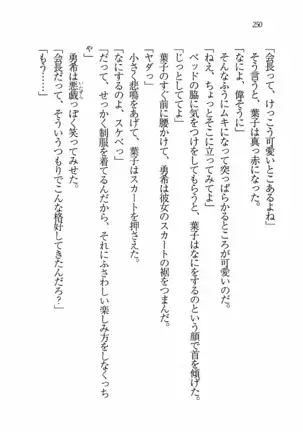 250
「会長って、けっこう可愛いとこあるよね」
そう言うと、葉子は真っ赤になった。
「なによ、偉そうに」
そんなふうにムキになって突っぱらかるところが可愛いのだ。
「ねえ、ちょっとそこに立ってみてよ」
ベッドの脇に気をつけをしてもらうと、葉子はなにをするのという顔で首を傾げた。
「じっとしててよ」
葉子のすぐ前に腰かけて、勇希は彼女のスカートの裾をつまんだ。
「ヤダっ」
小さく悲鳴をあげて、葉子はスカートを押さえた。
「なにするのよ、スケベっ」
「だって、せっかく制服を着てるんだから、それにふさわしい楽しみ方をしなくっち
ゃ」
勇希は悪戯っぽく笑ってみせた。
「もう……」
「会長だって、そういうつもりでこんな格好してきたんだろ？」